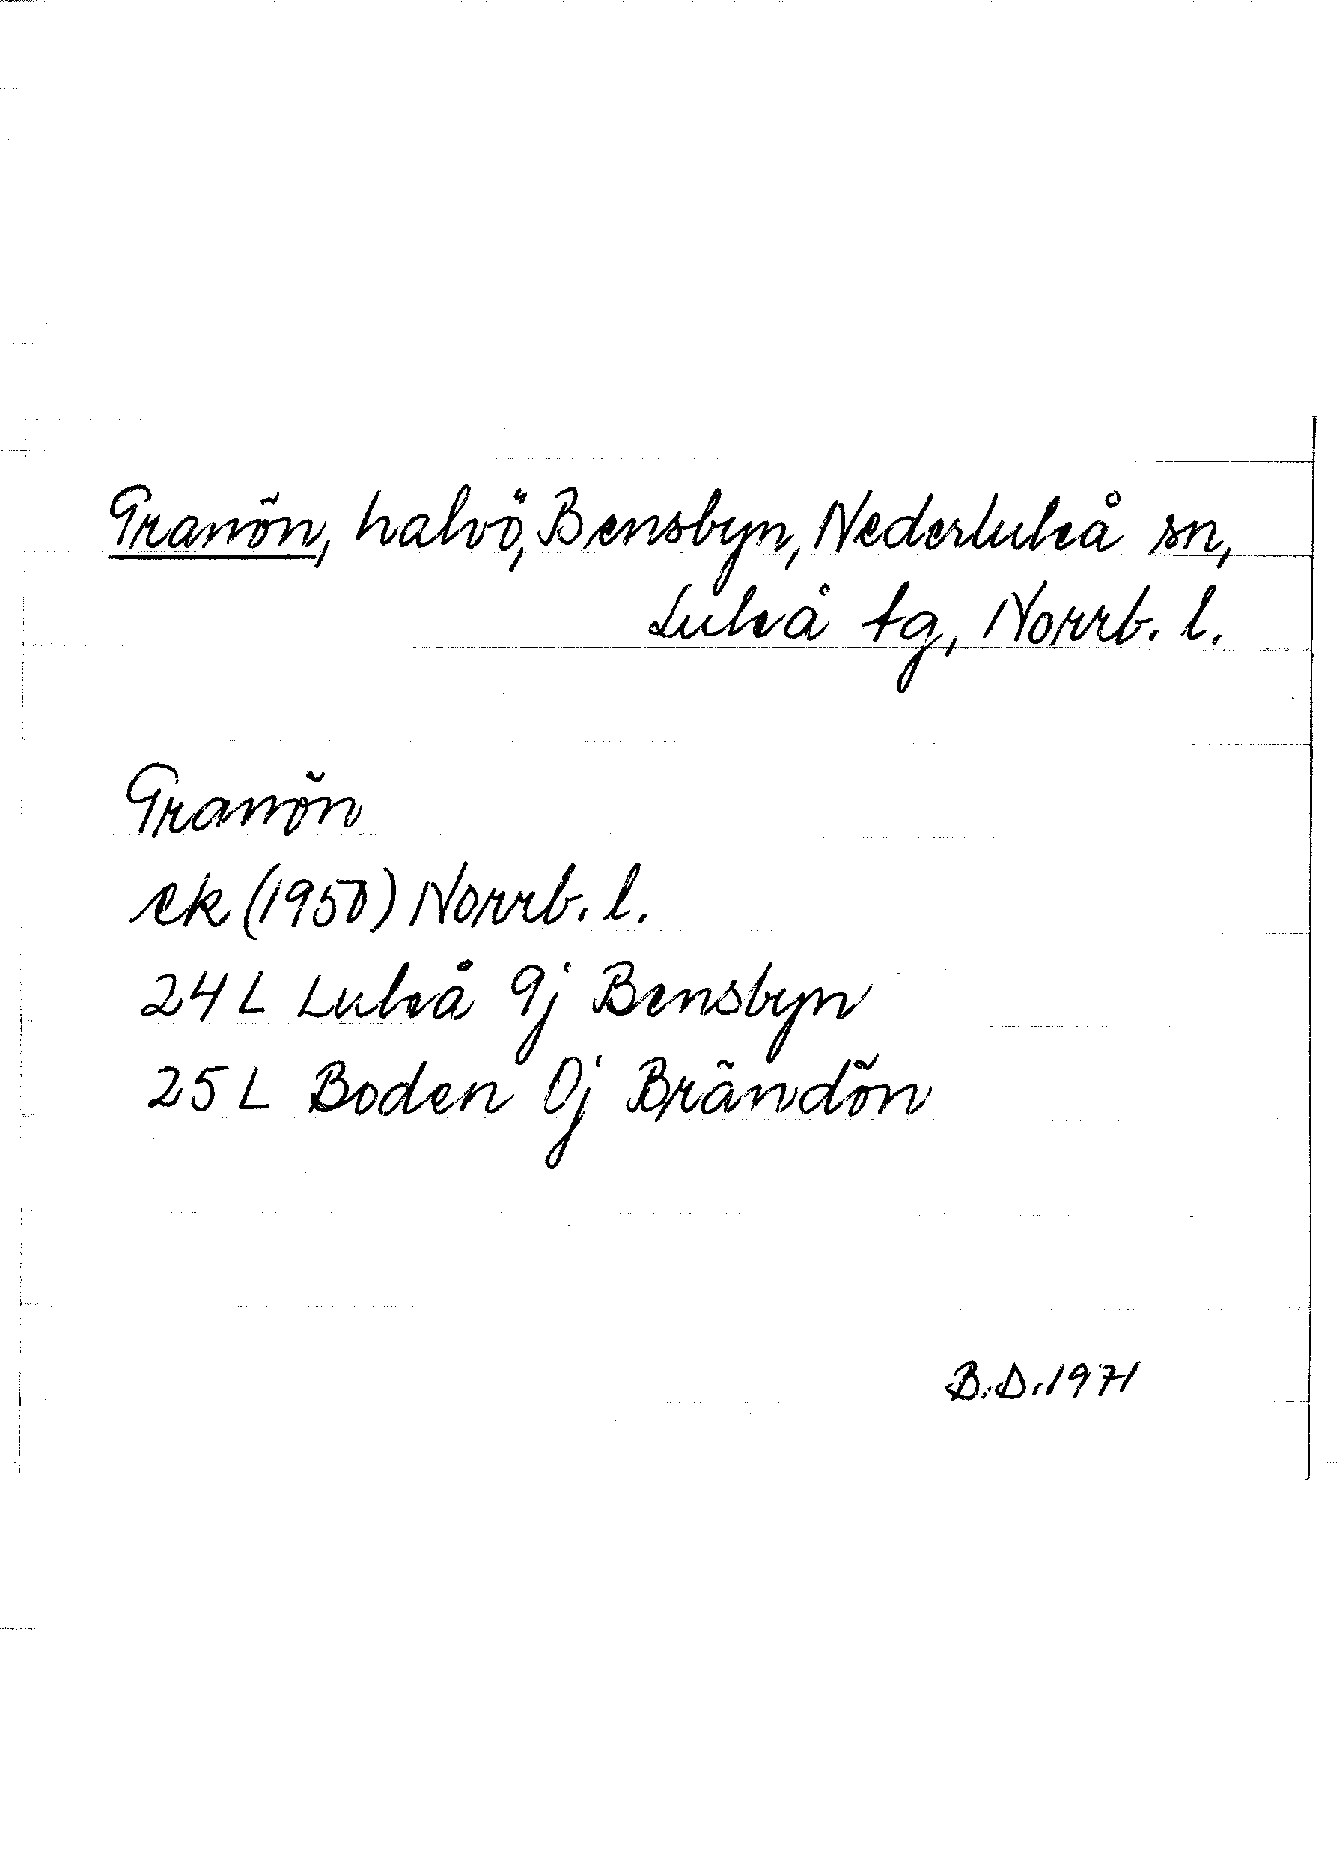 Granön, halvö, Bensbyn, Nederluleå sn,
Luleå tg, Norrb. l.
Granön
ek (1950) Norrb. l.
24 L Luleå 9j Bensbyn
25 L Boden 0j Brändön
B.D. 1971